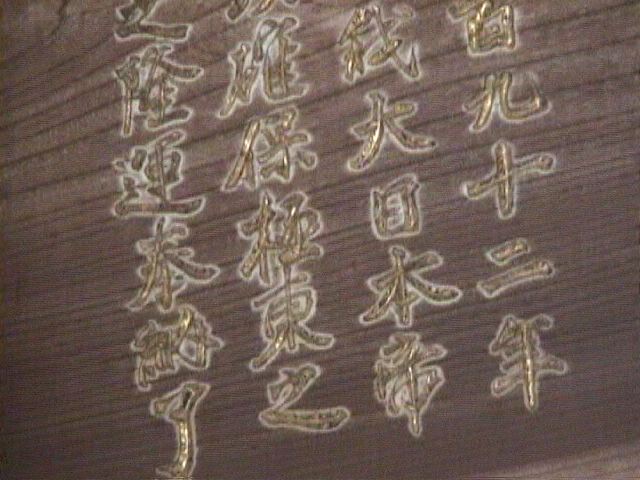 百九十二年
我大日本帝
雄保極東之
之隆運奉酬了